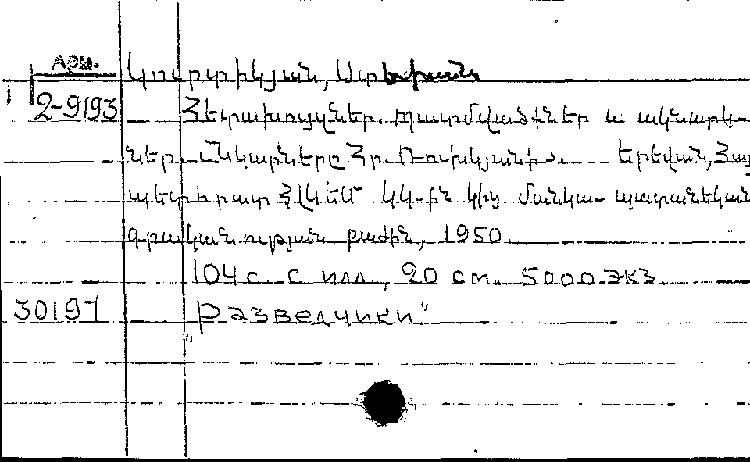 Арм.
Կուրտիկյան, Ստեփան
2-9193 Հետախույզներ. պատմվածքներ և ակնարկ-
ներ. Նկարները Հր. Ռուխկյանի. Երեվան, Հայ
պետհրատ ՀԼԿԵՄ ԿԿ-ին կից մանկա-պատանեկան
գրականության բաժին, 1950
104 с. с илл., 20 см. 5000 экз
30197 "Разведчики"